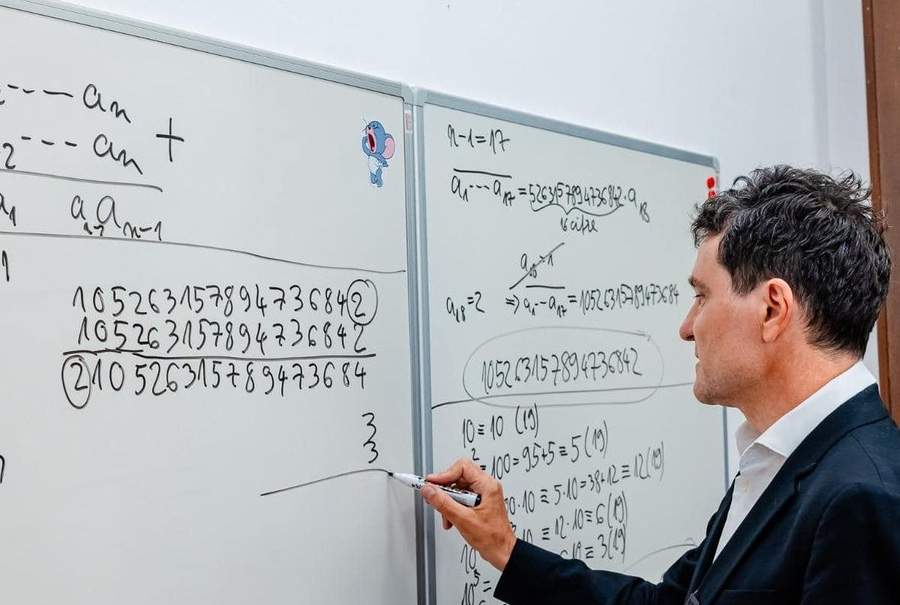 ---- aₙ
2 --- aₙ +
a₁ aₙaₙ₋₁
1
105263157894736842
105263157894736842
210526315789473684
3
3
3
n-1=17
a₁---a₁₇=5263157894736842·a₁₈
16 cifre
a₁₈=1
a₁₈=2 ⇒ a₁--a₁₇=10526315789473684
105263157894736842
10≡10 (19)
²=100=95+5≡5(19)
0·10≡5·10=38+12≡12(19)
0≡12·10≡6(19)
≡3(19)
10
10⁵≡